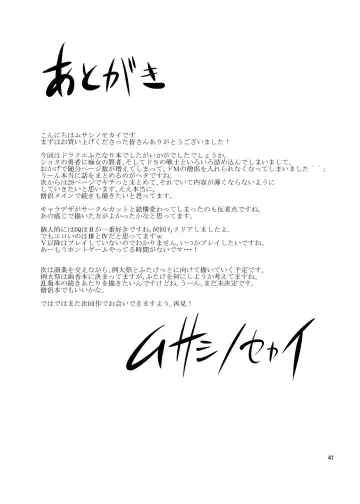 あとがき
こんにちはムサシノセカイです
まずはお買い上げくださった皆さんありがとうございました！
今回はドラクエふたなり本でしたがいかがでしたでしょうか。
ショタの勇者に痴女の賢者、そしてドSの戦士といろいろ詰め込んでしまいまして、
おかげで随分ページ数が増えてしまって、ドMの僧侶を入れられなくなってしまいました
うーん本当に話をまとめるのがヘタですね。
次からは20ページでキチっとまとめて、それでいて内容が薄くならないように
していきたいと思います、ええ本当に。
僧侶メインで続きも描きたいと思ってます。
キャラデザがサークルカットと結構変わってしまったのも反省点ですね。
あの感じで描いた方がよかったかなと思ってます。
個人的にはDQはⅡが一番好きですね、何回もクリアしましたよ。
でもエロいのはⅢとⅣだと思ってますw
Ⅴ以降はプレイしていないのでわかりません。いつかプレイしたいですね。
あーもうホントゲームやってる時間がないです・・・！
次は商業を交えながら、例大祭とふたけっとに向けて描いていく予定です。
例大祭は幽香本に決まってますが、ふたけを何にしようか考えてますね。
乱菊本の続きあたりを描きたいんですけどね。うーん、まだ未決定です。
僧侶本でもいいかな。
ではではまた次回作でお会いできますよう。再見！
ムサシノセカイ
41